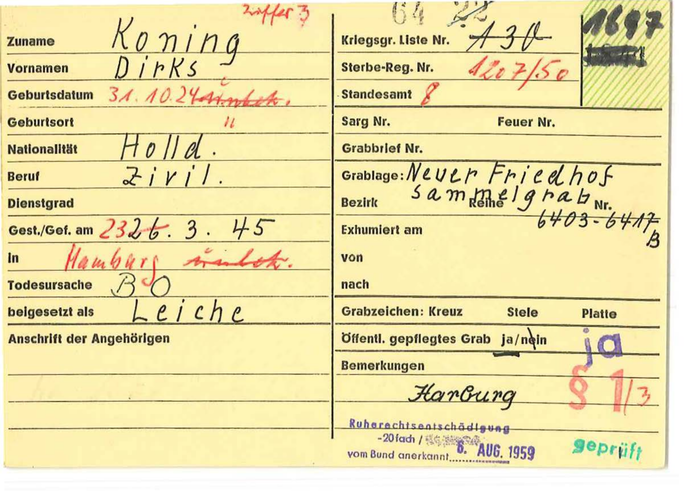 Ziffer 3
64 22
1697
Zuname Koning
Vornamen Dirks
Geburtsdatum 31.10.24 unbek.
Geburtsort "
Nationalität Holld.
Beruf Zivil.
Dienstgrad
Gest./Gef. am 23 26. 3. 45
in Hamburg unbek.
Todesursache BO
beigesetzt als Leiche
Anschrift der Angehörigen
Kriegsgr. Liste Nr. 130
Sterbe-Reg. Nr. 1207/50
Standesamt 8
Sarg Nr. Feuer Nr.
Grabbrief Nr.
Grablage: Neuer Friedhof
Sammelgrab
Bezirk Reihe Nr.
6403-6417
B
Exhumiert am
von
nach
Grabzeichen: Kreuz Stele Platte
Öffentl. gepflegtes Grab ja/nein ja
Bemerkungen
§ 1/3
Harburg
Ruherechtsentschädigung
-20fach /
vom Bund anerkannt 6. AUG. 1959
geprüft